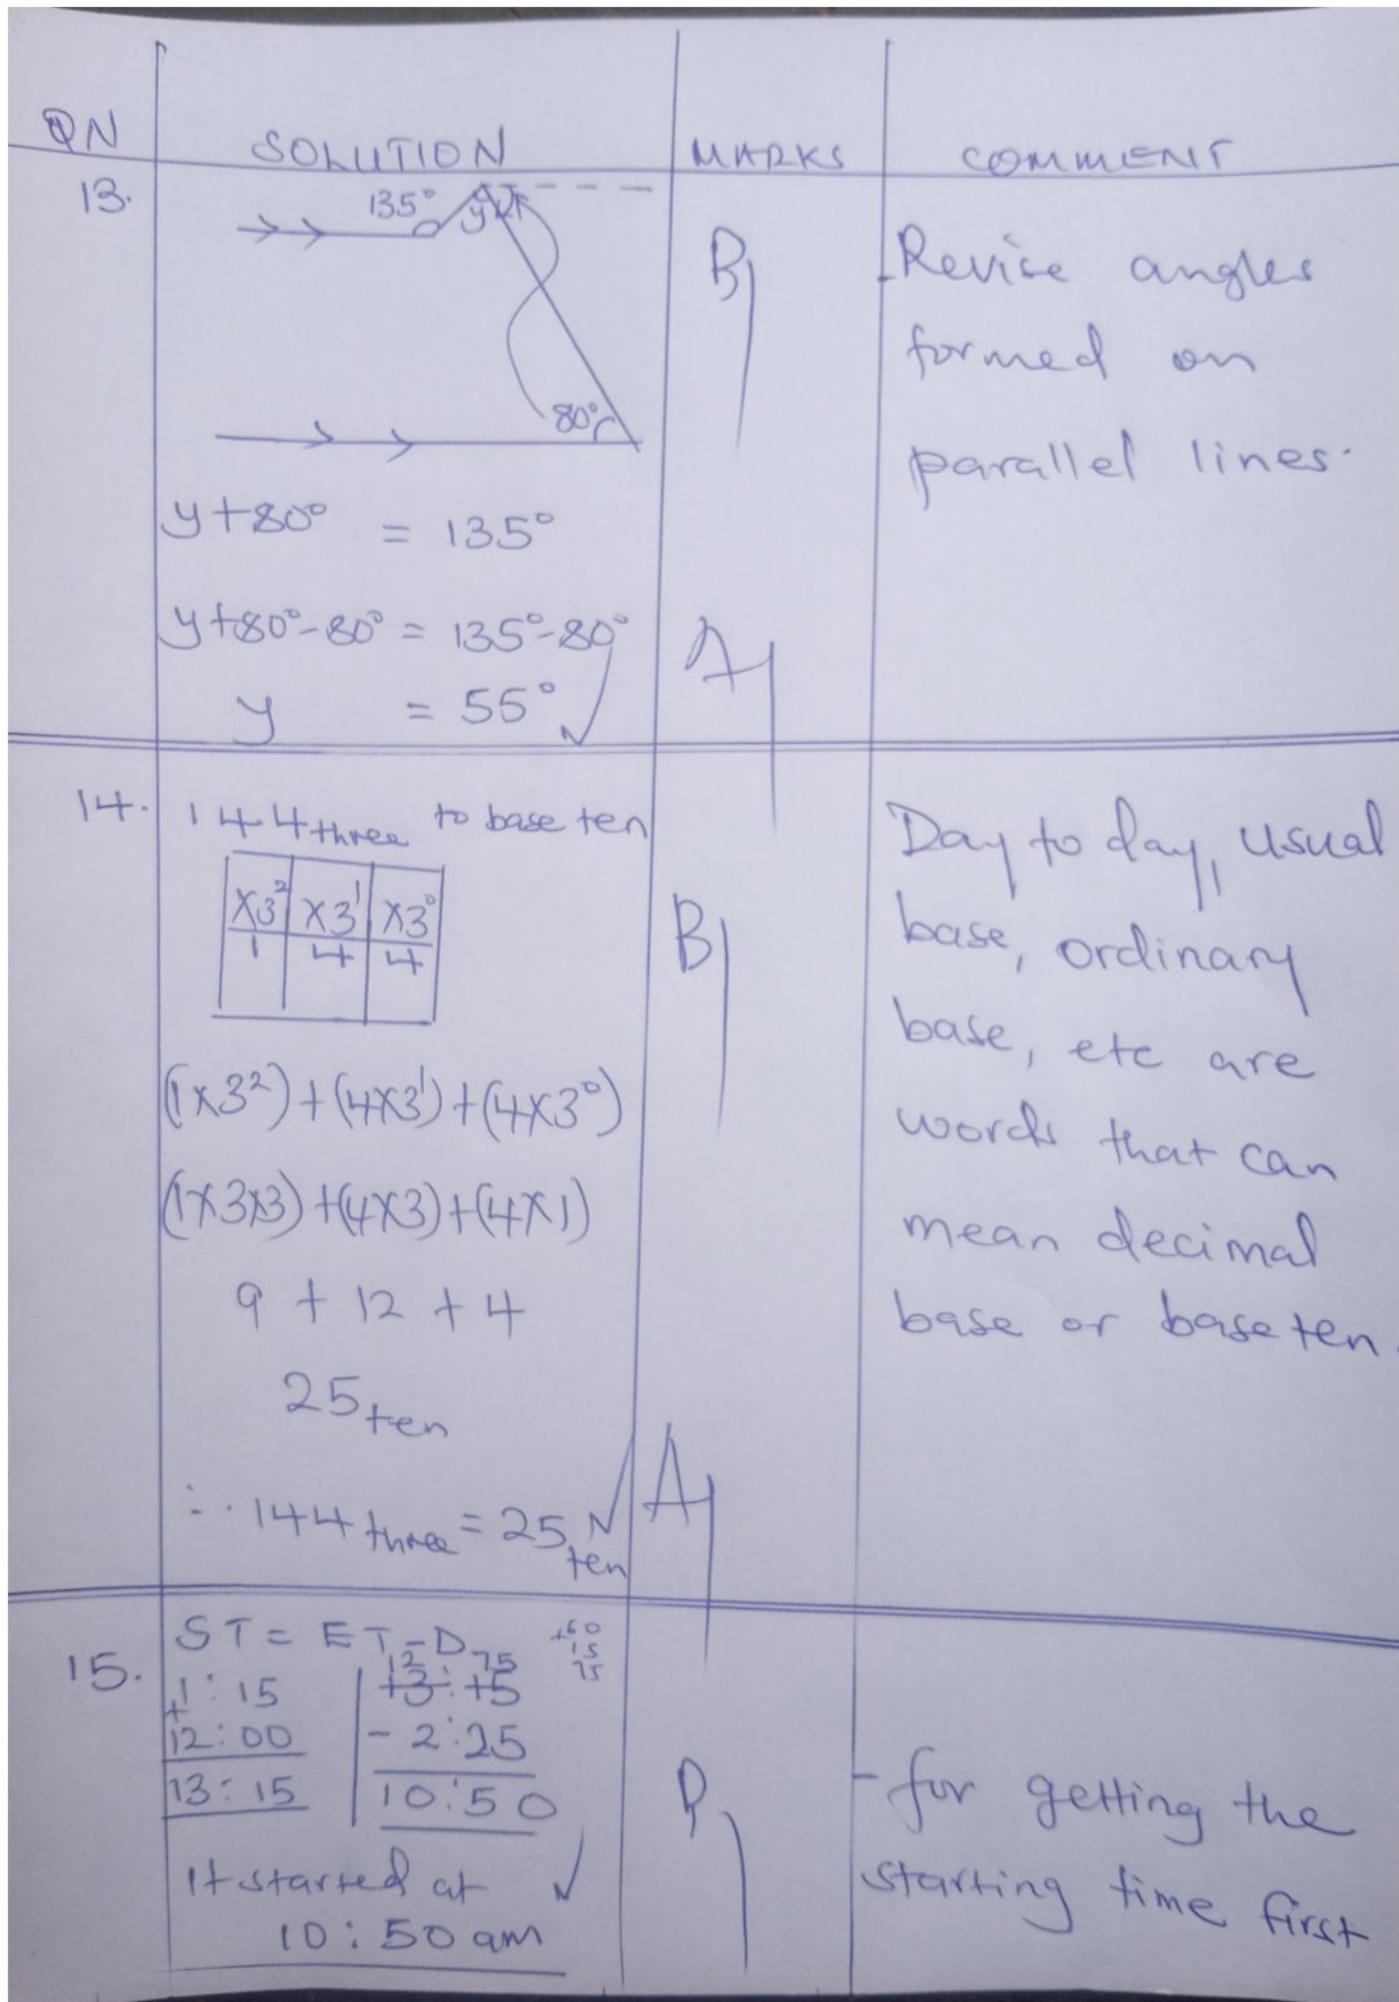 QN SOLUTION MARKS COMMENT
13.
135°
y
80°
y+80° = 135°
y+80°-80° = 135°-80°
y = 55° ✓
B1
A1
-Revise angles
formed on
parallel lines.
14.
144three to base ten
x3² x3¹ x3⁰
1 4 4
(1x3²)+(4x3¹)+(4x3⁰)
(1x3x3)+(4x3)+(4x1)
9 + 12 + 4
25ten
∴ 144three = 25ten ✓
B1
A1
Day to day, usual
base, ordinary
base, etc are
words that can
mean decimal
base or base ten.
15.
ST = ET - D
+60
15
75
1:15
+
12:00
13:15
12 75
13:15
- 2:25
10:50
It started at ✓
10:50am
- for getting the
starting time first